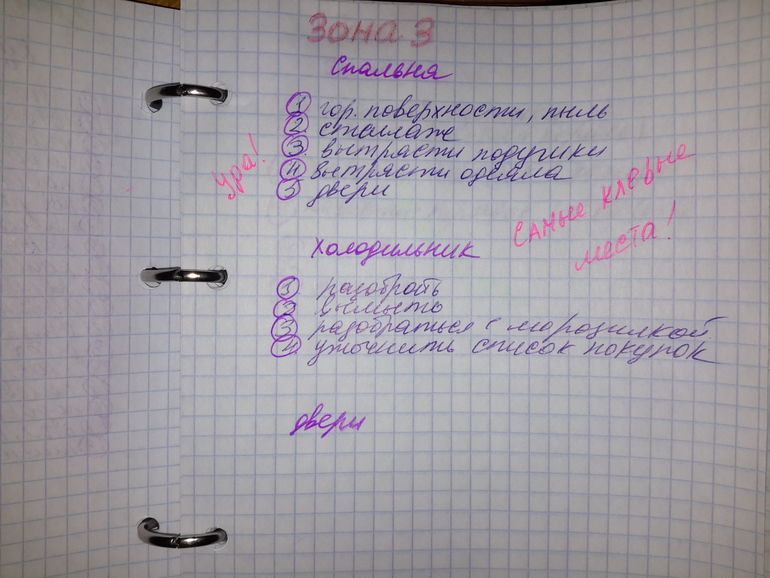 Зона 3
Спальня
① гор. поверхности, пыль
② стеллаж
③ вытрясти подушки
④ вытрясти одеяла
⑤ двери
Ура!
Самые клевые
места!
Холодильник
① разобрать
② вымыть
③ разобраться с морозилкой
④ уточнить список покупок
двери